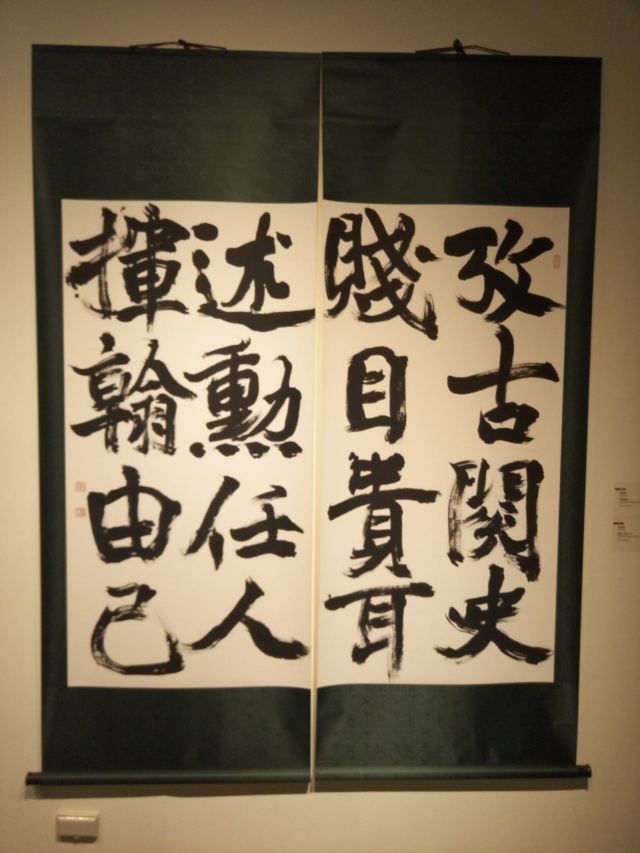 攷古閱史
賤目貴耳
述勳任人
揮翰由己